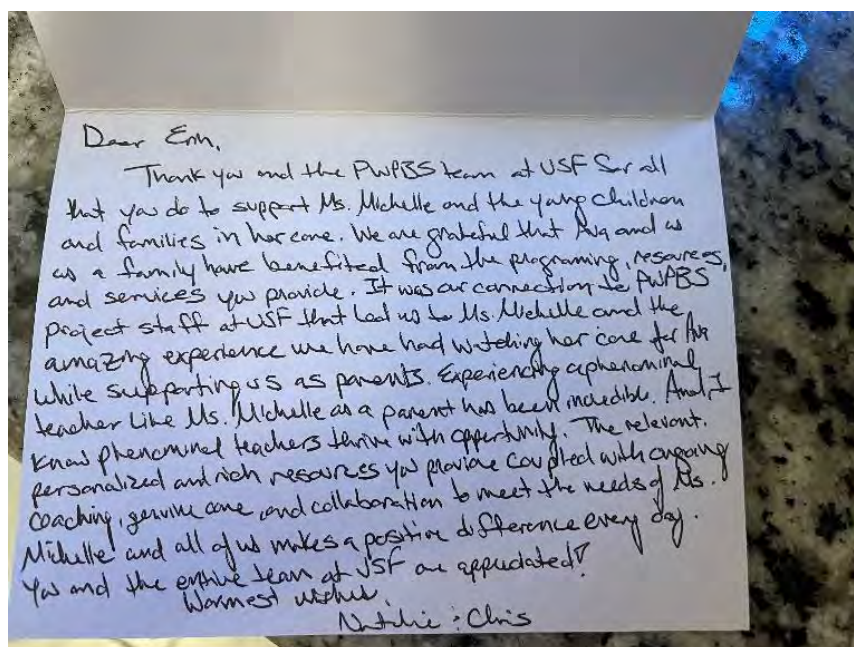 Dear Erin,
Thank you and the PWPBS team at USF for all
that you do to support Ms. Michelle and the young children
and families in her care. We are grateful that Ava and us
as a family have benefited from the programing, resources,
and services you provide. It was our connection to PWPBS
project staff at USF that lead us to Ms. Michelle and the
amazing experience we have had watching her care for Ava
while supporting us as parents. Experiencing a phenominal
teacher like Ms. Michelle as a parent has been incredible. And I
know phenominal teachers thrive with opportunity. The relevant.
personalized and rich resources you provide coupled with ongoing
coaching, genuine care, and collaboration to meet the needs of Ms.
Michelle and all of us makes a positive difference every day.
You and the entire team at USF are appreciated!
Warmest wishes,
Natalie & Chris